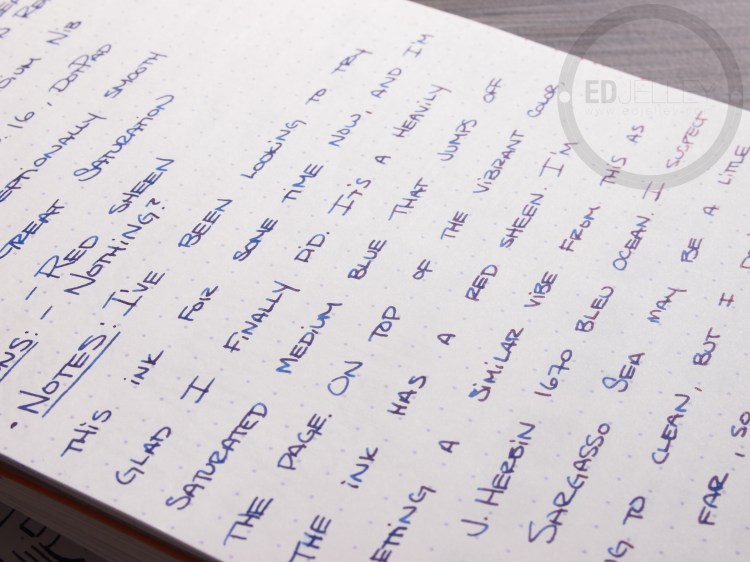 EDJELLEY
DIUM NIB
16, DOTPAD
EPTIONALLY SMOOTH
GREAT SATURATION
NS: - RED SHEEN
- NOTHING?
• NOTES: I'VE BEEN LOOKING TO TRY
THIS INK FOR SOME TIME NOW, AND I'M
GLAD I FINALLY DID. IT'S A HEAVILY
SATURATED MEDIUM BLUE THAT JUMPS OFF
THE PAGE. ON TOP OF THE VIBRANT COLOR,
THE INK HAS A RED SHEEN. I'M
ETTING A SIMILAR VIBE FROM THIS AS
J. HERBIN 1670 BLEU OCEAN. I SUSPECT
SARGASSO SEA MAY BE A LITTLE
NG TO CLEAN, BUT I
FAR, SO